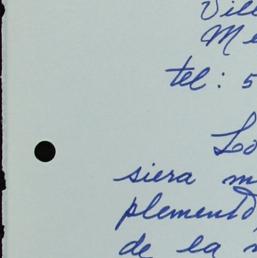 Vill
Me
tel: 5
Lo
siera m
plemento,
de la m